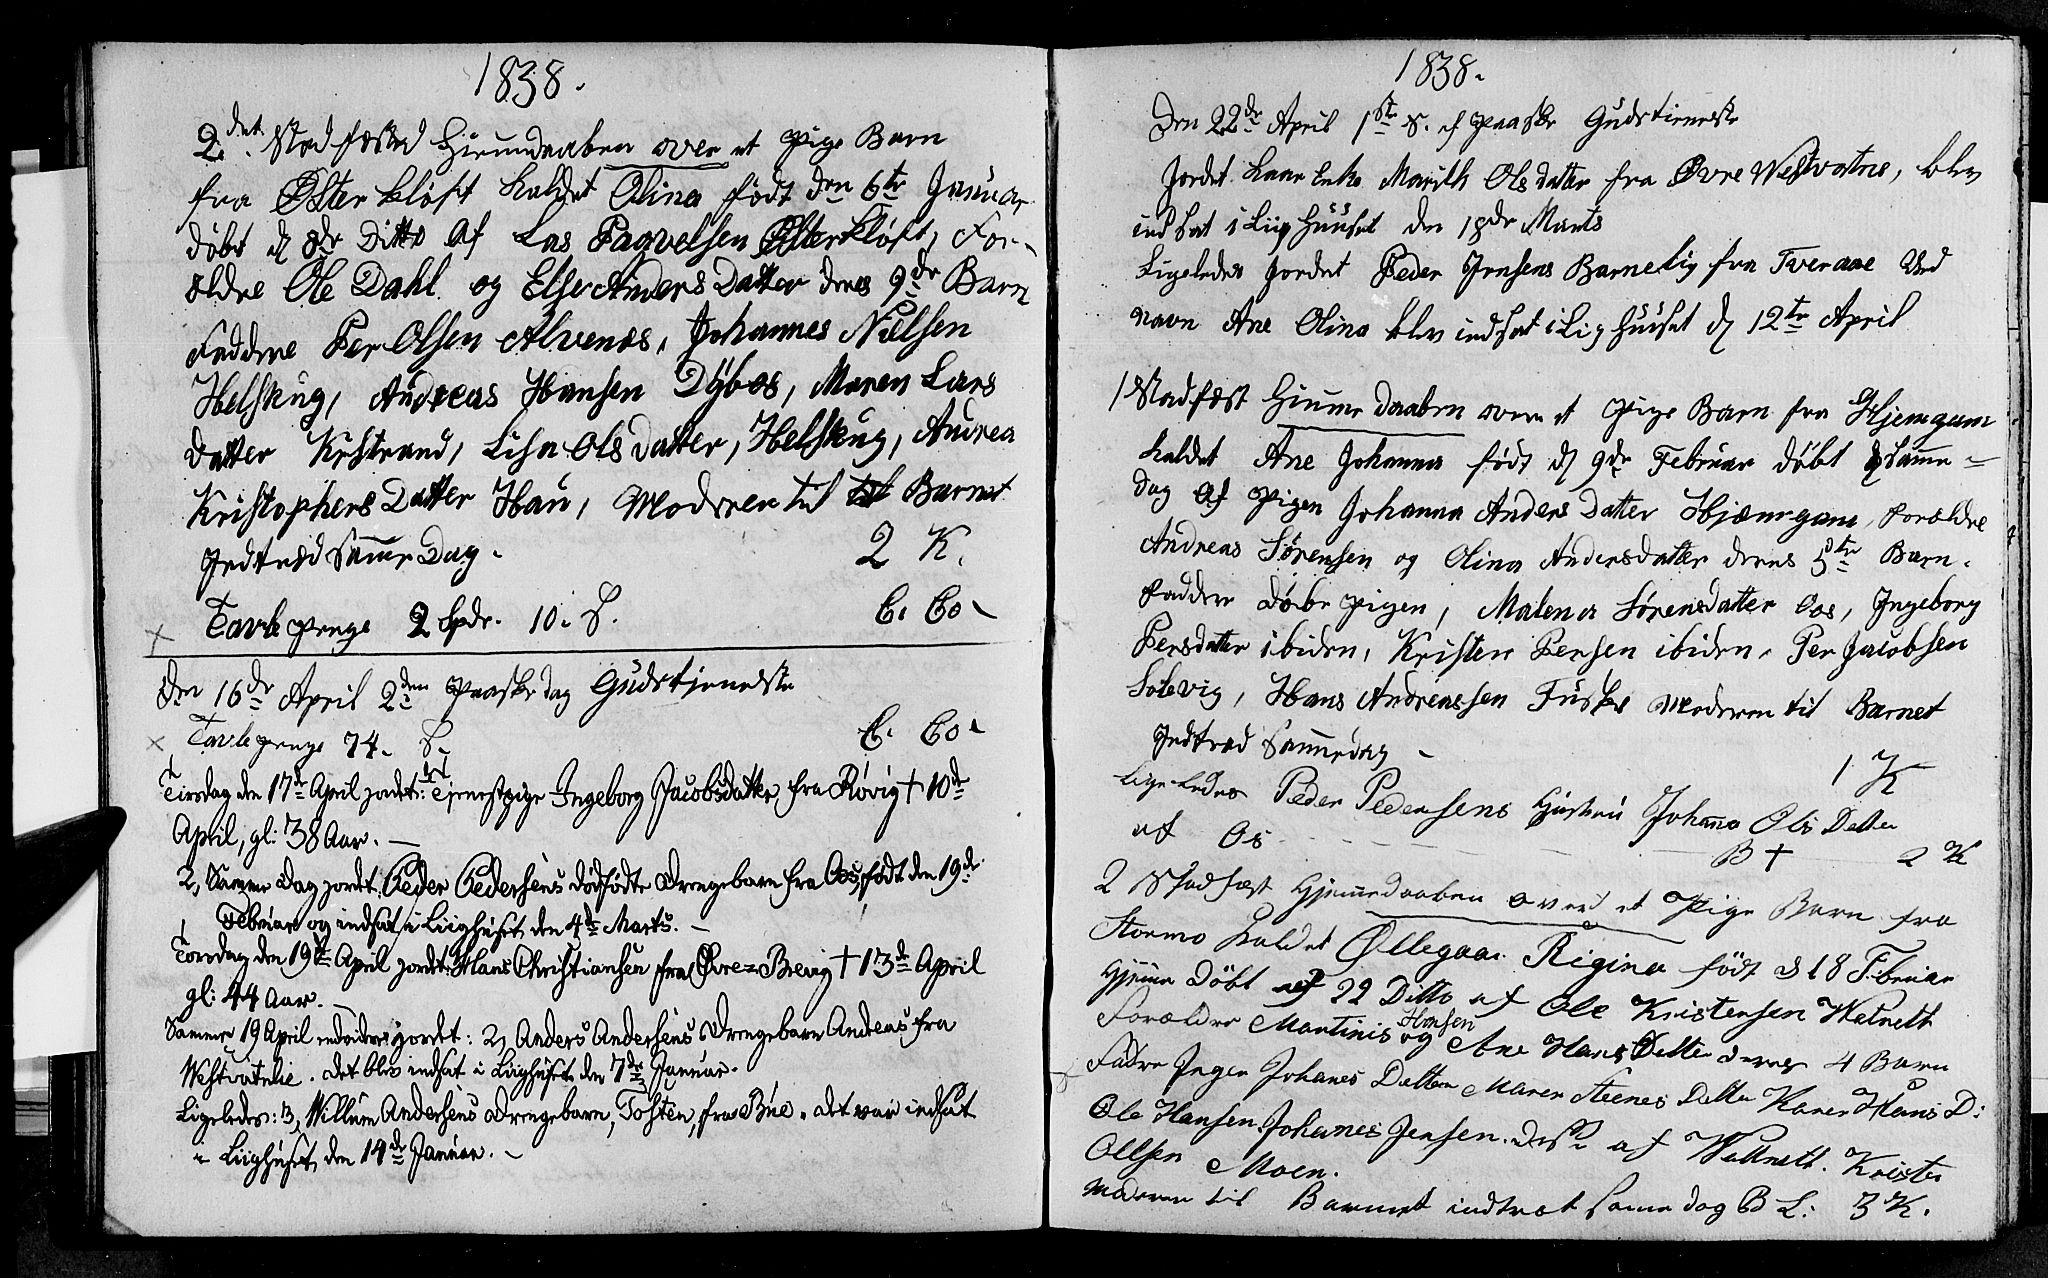 1838.
2det. Stadfæsted Hiemdaaben over et Pige Barn
fra Østerkløft kaldet Olina født den 6te Januar
døbt d 8de Ditto Af Las Pagvelsen Østerkløft, For-
ældre Ole Dahl og Else Anders Datter deres 9de Barn
Faddrne Per Olsen Alvenes, Johannes Nielsen
Helskug, Andreas Hansen Dybos, Maren Lars
datter Kistrand, Lisa Ols Datter, Helskug, Andrea
Kristophers Datter Hau, Moderen til Barnet
Indtræd Samme Dag. 2 K.
Tavle Penge 2 Spdr. 10. S. C. Co
Den 16de April 2den Paaske dag Gudstjeneste
Tavle penge 74. S. C. Co
Tirsdag den 17de April jordet: Tjenestpige Ingeborg Jacobsdatter fra Røvig † 10de
April, gl: 38 Aar.
2, Samme Dag jordt. Peder Pedersens dødfødte Drengebarn fra Oos, født den 19de
Februar og indsat i Liighuset den 4de Marts.
Torsdag den 19de April jordt: Hans Christiansen fra Øvre=Brevig † 13de April
gl: 44 Aar.
Samme 19 April endvidere jordt: 2, Anders Andersens Drengebarn Andreas fra
Westvatnlie. det blev indsat i Liighuset den 7de Januar.
Ligeledes: 3, Willum Andersens Drengebarn, Tosten, fra Bue. det var indsat
i Liighuset den 14de Januar.
1838.
Den 22de April 1ste S. ef Paaske Gudstieneste
Jordet Enke Marith Olsdatter fra Øvre Westvatne, blev
ind sat i Liig Huuset den 18de Marts
Ligeledes Jordet Peder Jensens Barnelig fra Tveraae Ved
navn Ane Olina blev indsat i Lig huuset d 12te April
1 Stadfæst Hiemme daaben over et Pige Barn fra Hjemgam
kaldet Ane Johanna født d 9de Februar døbt samme
dag af Pigen Johanna Anders Datter Hjæmgam, Forældre
Andreas Sørensen og Olina Andersdatter deres 5te Barn.
Faddere Døbe Pigen, Malena Sørensdatter Oos, Ingeborg
Persdatter ibiden, Kristen Persen ibiden, Per Jacobsen
Solevig, Hans Andreassen Fuske Moderen til Barnet
Indtræd Sammedag 1 K
Ligeledes Peder Pedersens Hustrue Johana Ols Datter
af Os B † 2 K
2 Stadfæst Hjemmedaaben over et Pige Barn fra
Stormo kaldet Øllegaar Rigina født d 18 Februar
Hjemme Døbt 22 Ditto af Ole Kristensen Watnett
Forældre Martinis Hansen og Ane Hans Datter deres 4 Barn
Fadre Inger Johanes Datter Maren Steenes Datter Karen Hans D:
Ole Hansen. Johanes Jensen. af Wattnett. Krister
Ollsen Moen.
Moderen til Barnet indtræt samme dag B L: 3 K.